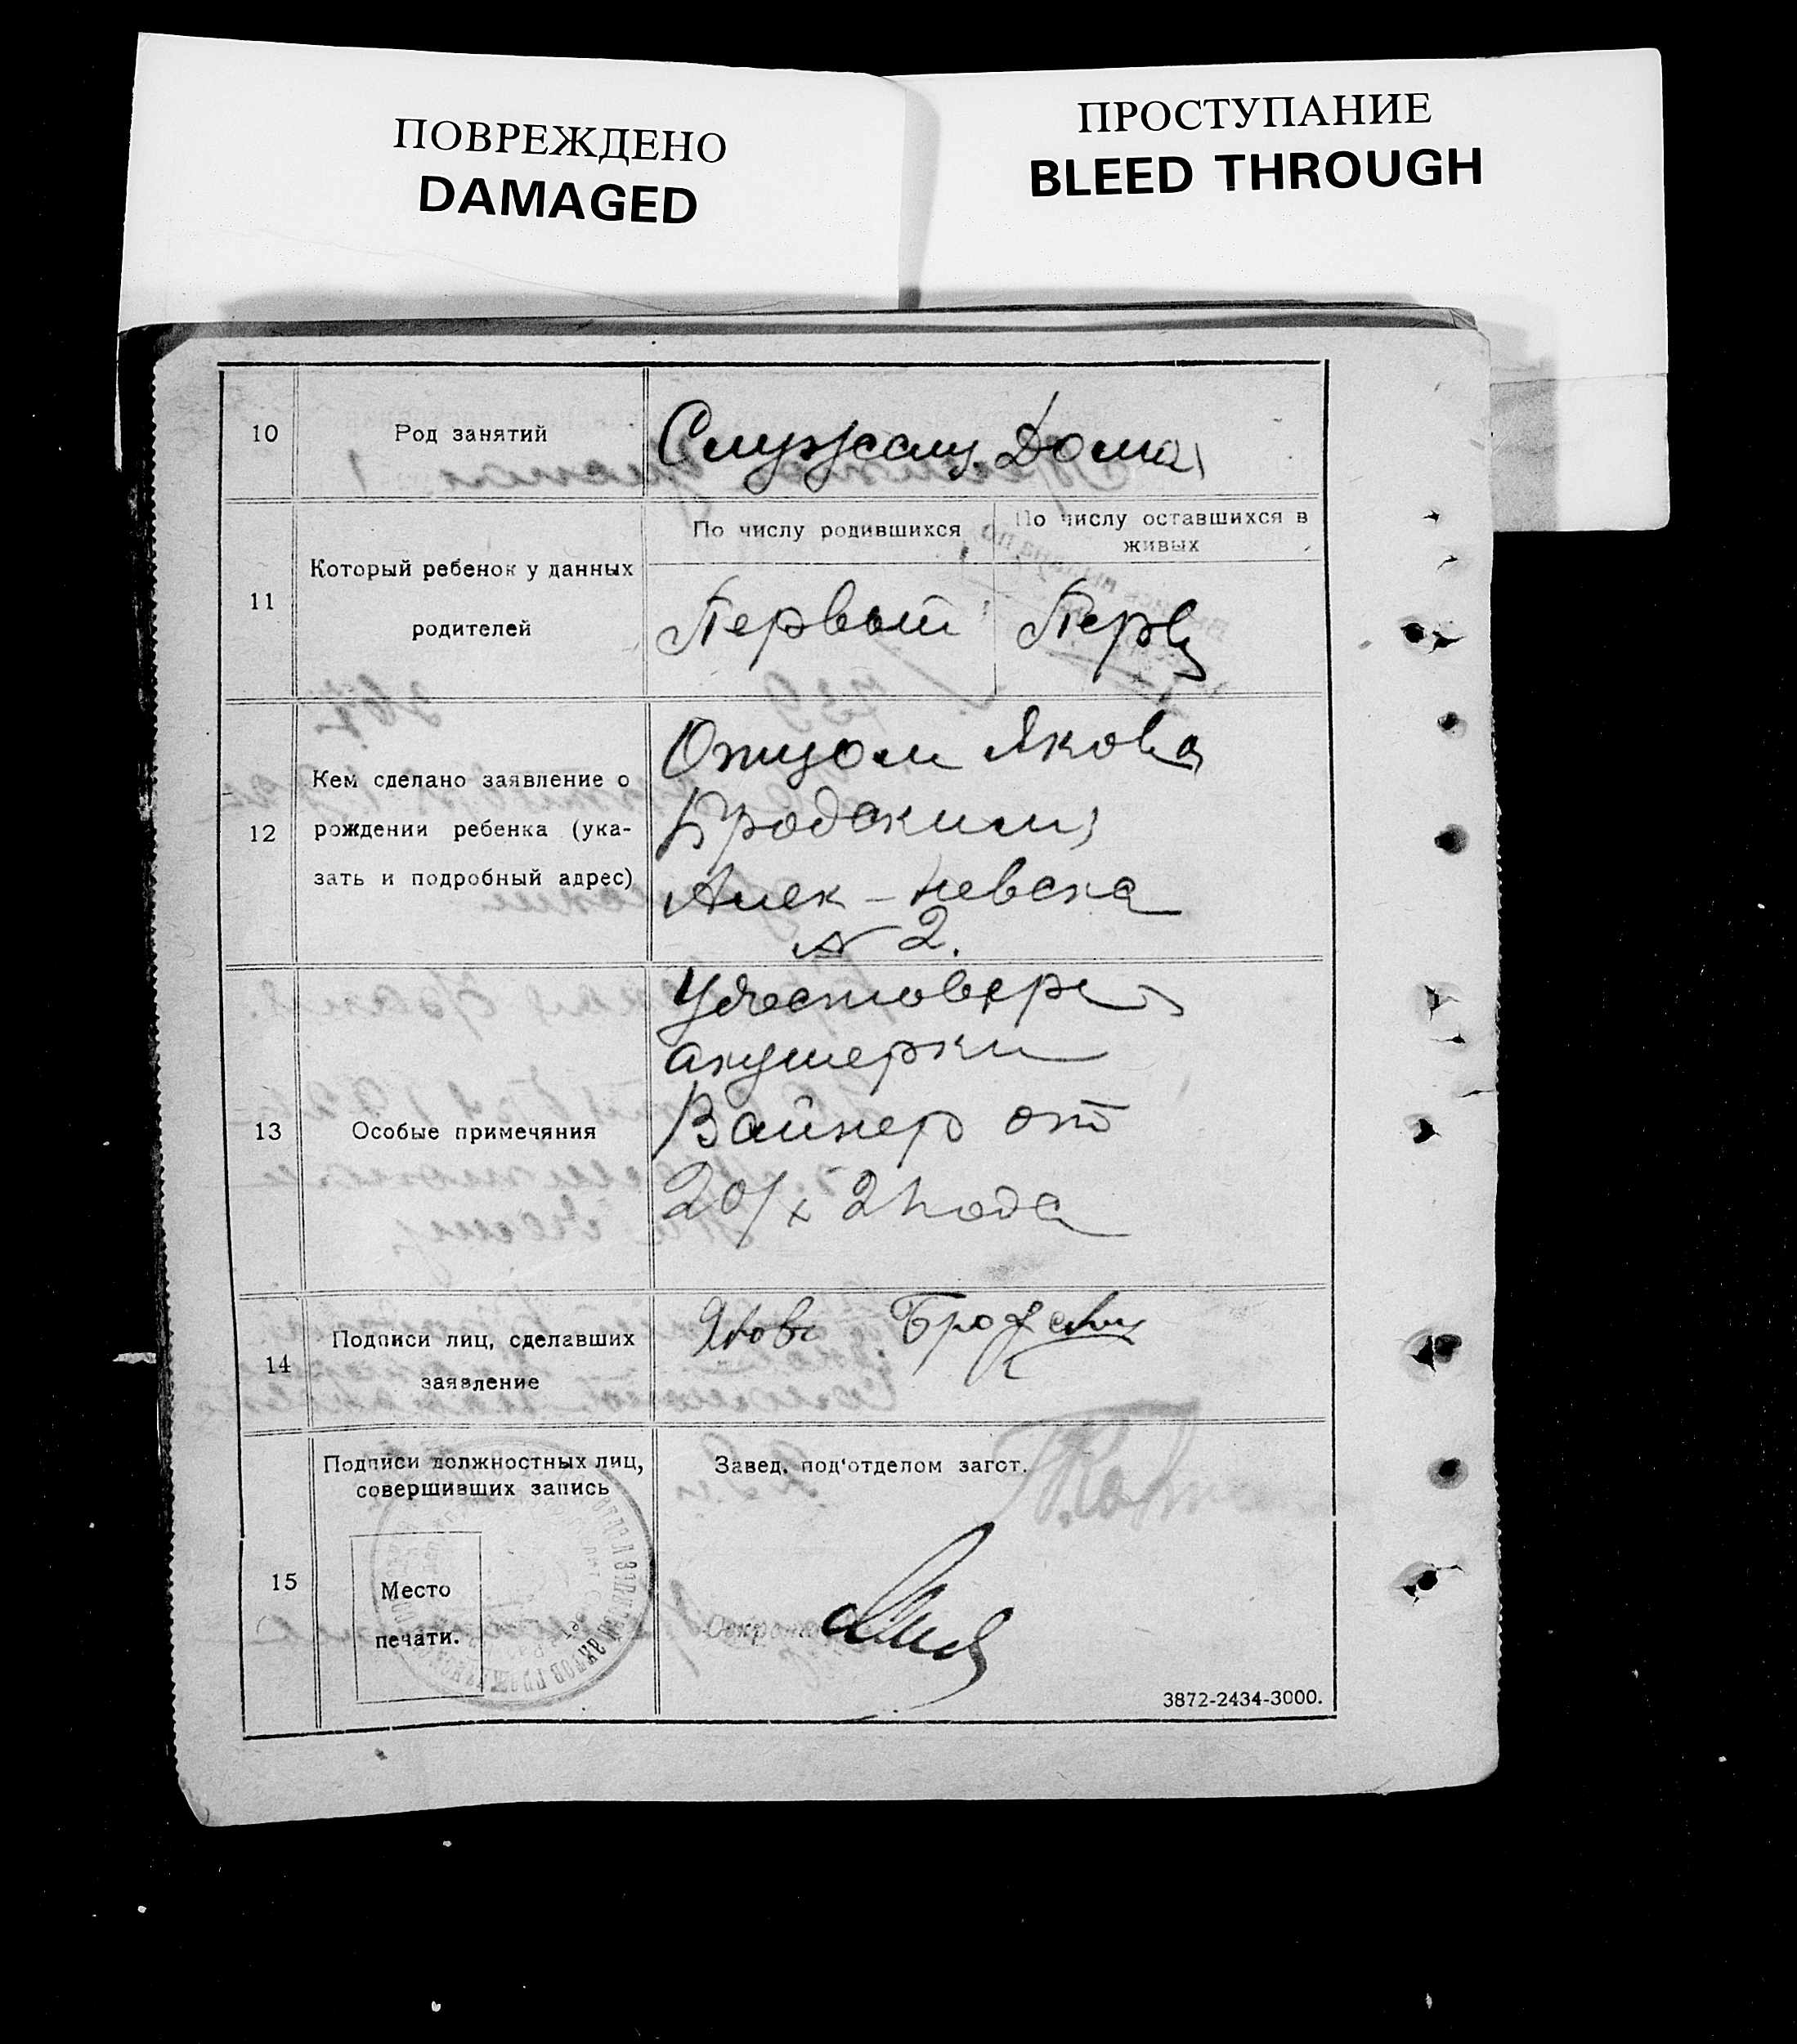 ПОВРЕЖДЕНО
DAMAGED
ПРОСТУПАНИЕ
BLEED THROUGH
10
Род занятий
Служащ. Дома
11
Который ребенок у данных
родителей
По числу родившихся
По числу оставшихся в
живых
Первый
Перв
12
Кем сделано заявление о
рождении ребенка (ука-
зать и подробный адрес)
Отцом Яково
Бродским
Алек-Невска
№ 2.
13
Особые примечяния
Удостовере
акушерки
Вайнер от
20/X 2 года
14
Подписи лиц, сделавших
заявление
Яков Бродский
15
Подписи должностных лиц,
совершивших запись
Место
печати.
Завед. под'отделом загот.
3872-2434-3000.